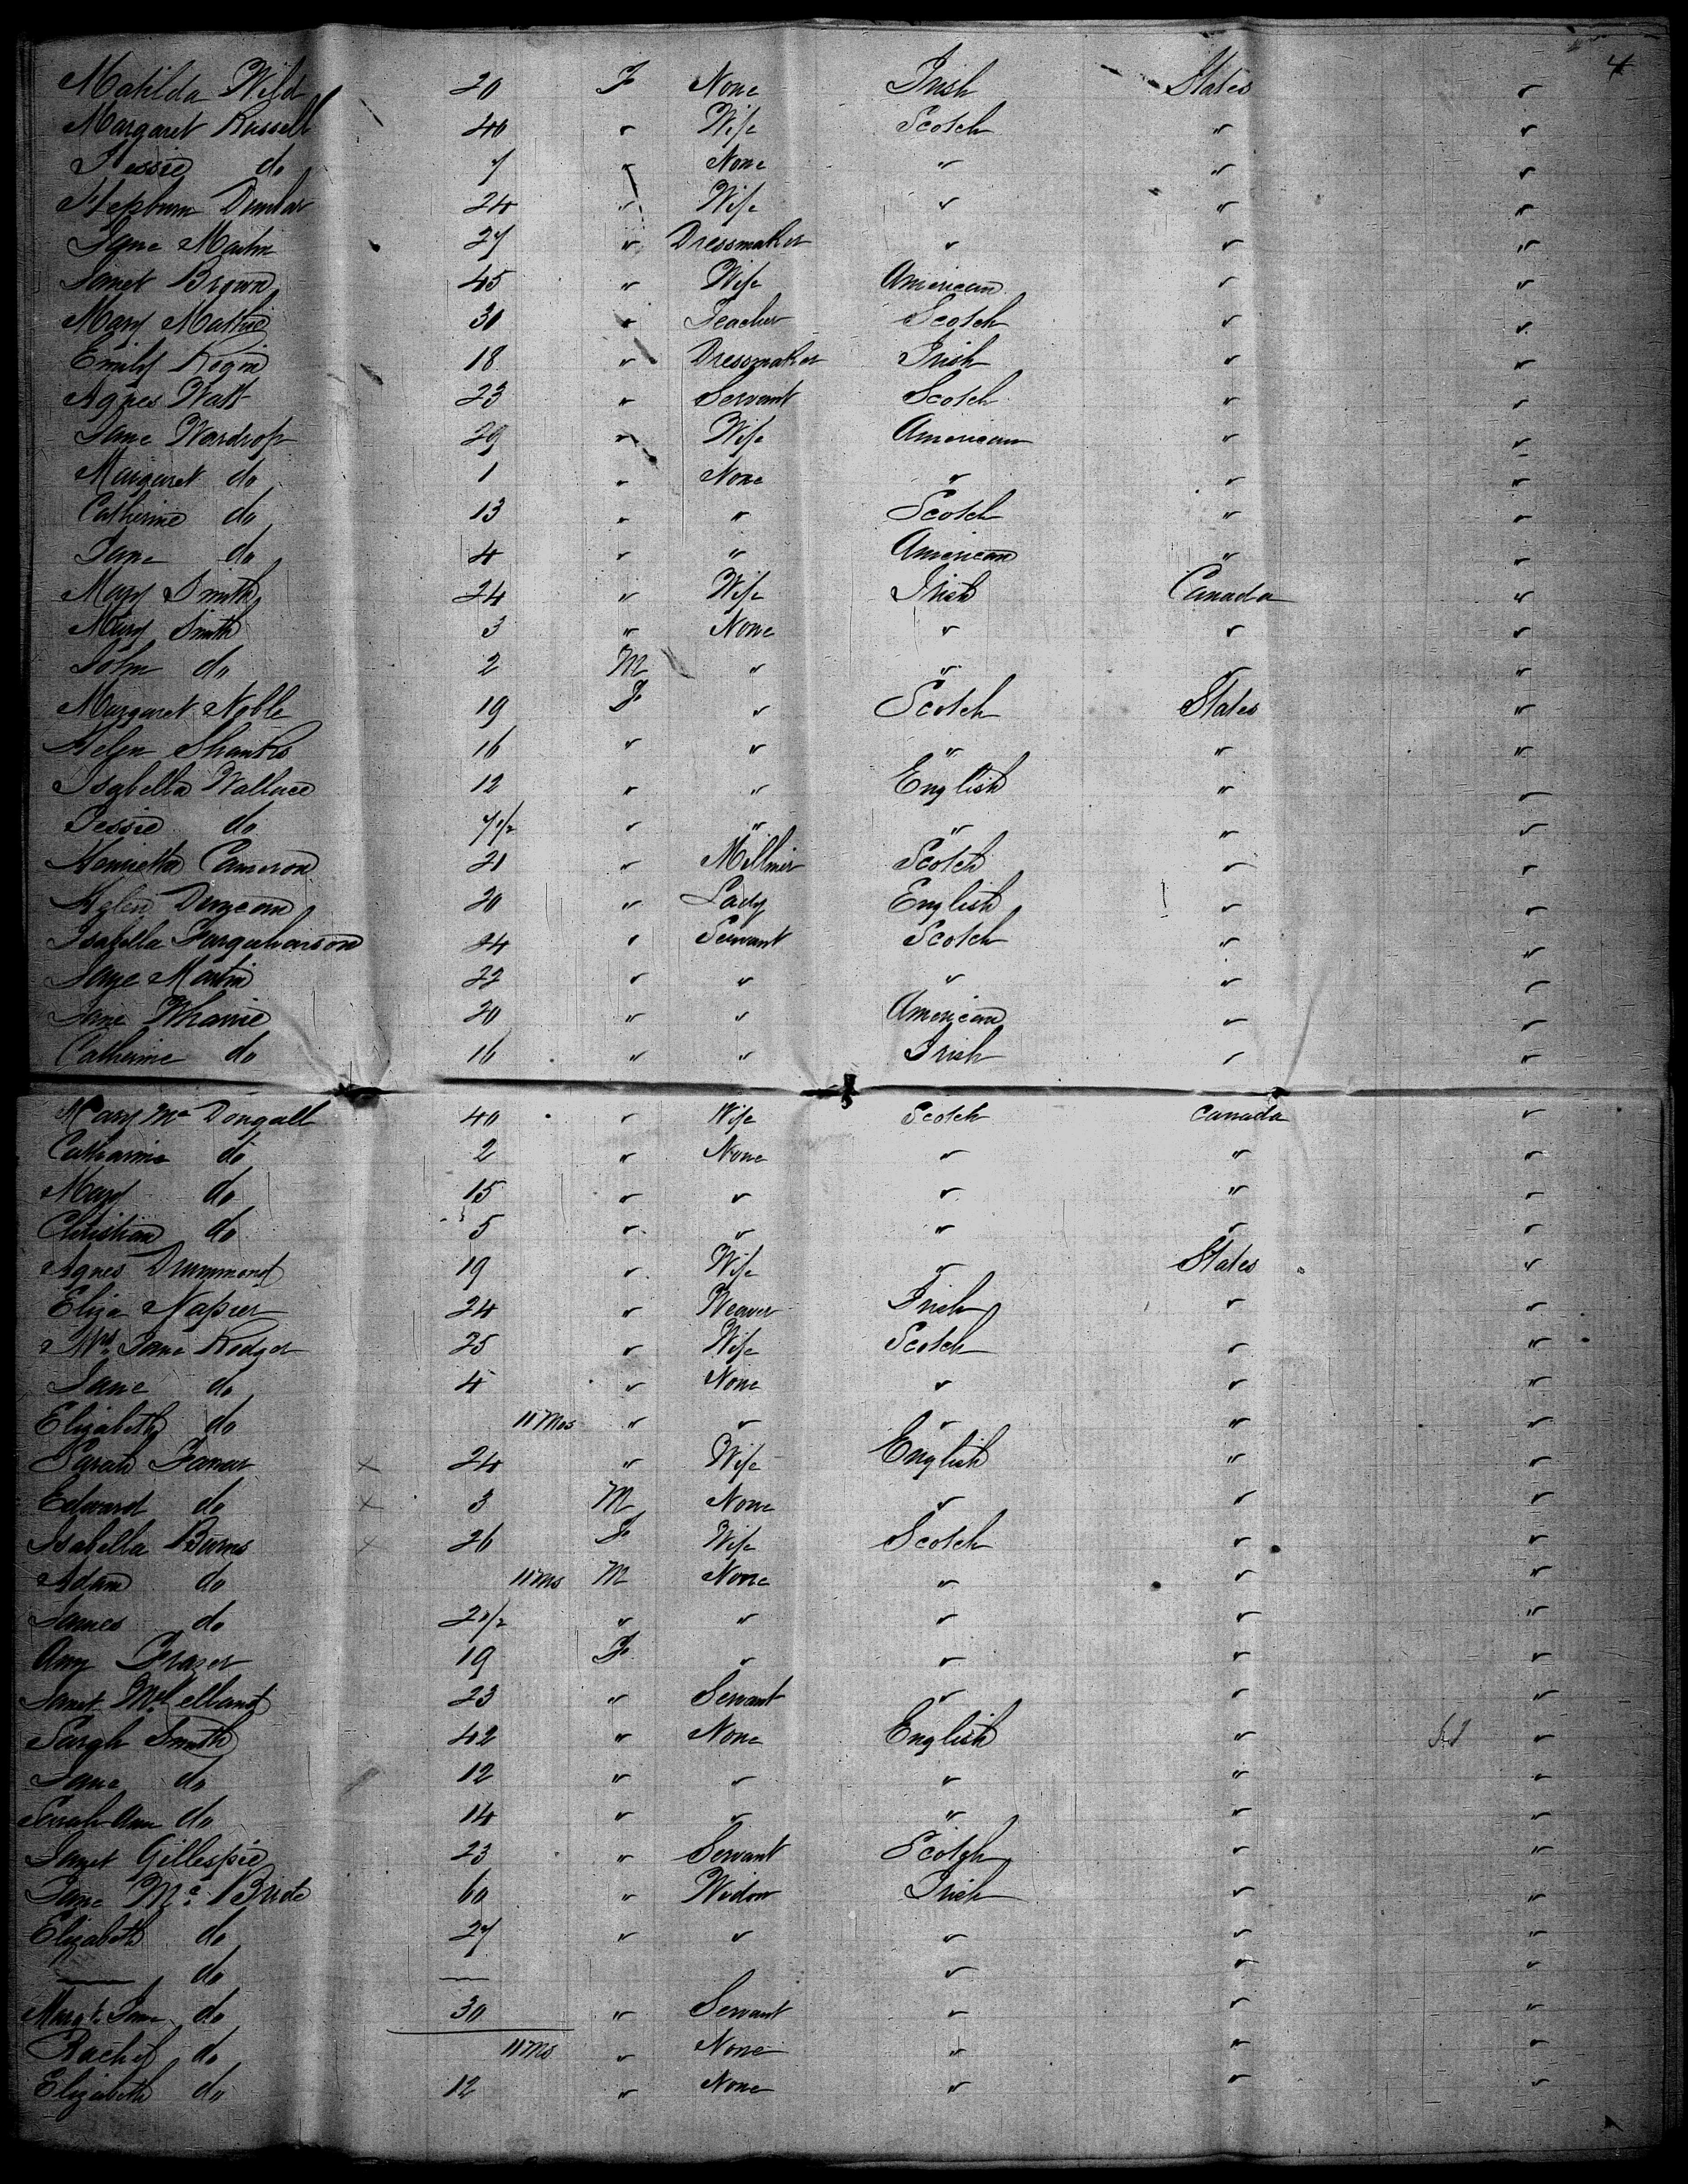 4
Matilda Wild 20 F None Irish States "
Margaret Russell 40 " Wife Scotch " "
Jessie do 7 " None " " "
Hepburn Dunbar 24 " Wife " " "
Jane Martin 27 " Dressmaker " " "
Janet Brown 45 " Wife American " "
Mary Mathie 30 " Teacher Scotch " "
Emily 18 " Dressmaker Irish " "
Agnes Watt 23 " Servant Scotch " "
Jane Wardrop 29 " Wife American " "
Margaret do 1 " None " " "
Catherine do 13 " " Scotch " "
Jane do 4 " " American " "
Mary Smith 24 " Wife Irish Canada "
Mary Smith 3 " None " " "
John do 2 M " " " "
Margaret Noble 19 F " Scotch States "
Helen Shanks 16 " " " " "
Isabella Wallace 12 " " English " "
Jessie do 7 1/2 " " " " "
Henrietta Cameron 21 " Milliner Scotch " "
Helen Duncan 20 " Lady English " "
Isabella Farquharson 24 " Servant Scotch " "
Jane Martin 22 " " " " "
Jane Wharrie 20 " " American " "
Catherine do 16 " " Irish " "
Mary Mc Dougall 40 " Wife Scotch Canada "
Catharine do 2 " None " " "
Mary do 15 " " " " "
Christian do 5 " " " " "
Agnes Drummond 19 " Wife " States "
Eliza Napier 24 " Weaver Irish " "
Mrs Jane Rodger 25 " Wife Scotch " "
Jane do 4 " None " " "
Elizabeth do 11 Mos " " " " "
Sarah Farrar 24 " Wife English " "
Edward do 3 M None " " "
Isabella Burns 26 F Wife Scotch " "
Adam do 11 Ms M None " " "
James do 2 1/2 " " " " "
Amy Frazer 19 F " " " "
Janet McLelland 23 " Servant " " "
Sarah Smith 42 " None English " "
Jane do 12 " " " " "
Sarah Ann do 14 " " " " "
Janet Gillespie 23 " Servant Scotch " "
Jane Mc Bride 60 " Widow Irish " "
Elizabeth do 27 " " " " "
— do — " " "
Margt Jane do 30 " Servant " " "
Rachel do 11 Ms " None " " "
Elizabeth do 12 " None " " "